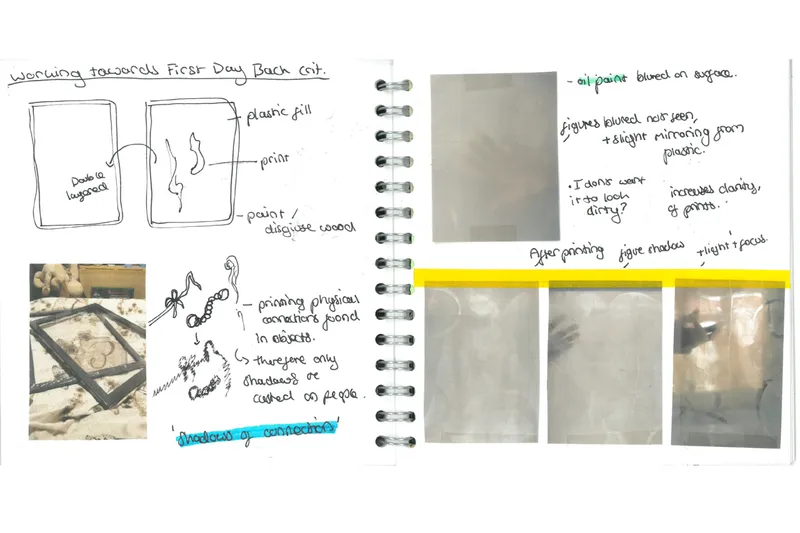 Working towards First Day Back crit.
plastic fill
print
Double
layered
paint /
disguise wood
- printing physical
connections found
in objects.
↳ therefore only
shadows re
casted on people.
'shadows of connection'
- oil paint blured on surface.
figures blured not seen,
+ slight mirroring from
plastic.
• I don't want
it to look
dirty?
increases clarity,
of prints.
After printing
figure shadow
+ light + focus.